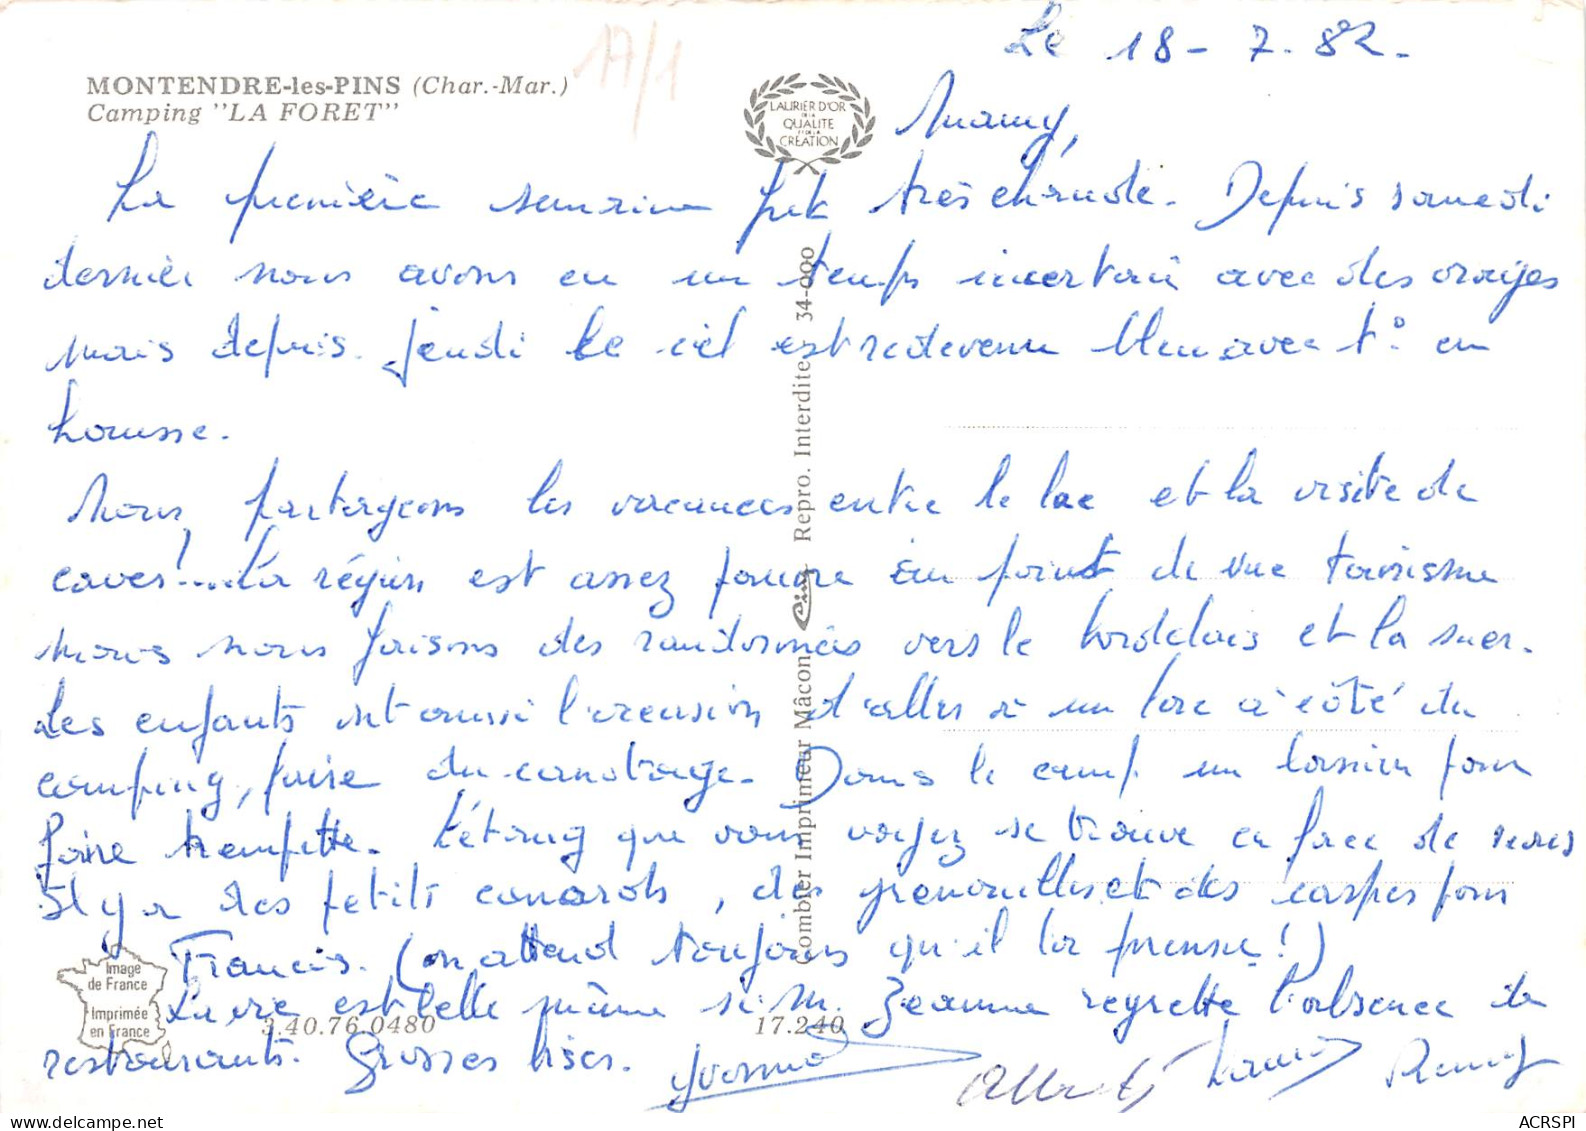 Le 18-7-82.
17/1
MONTENDRE-les-PINS (Char.-Mar.)
Camping "LA FORET"
LAURIER D'OR
DE LA
QUALITE
ET DE LA
CREATION
Mamy,
La première semaine fut très chaude. Depuis samedi
dernier nous avons eu un temps incertain avec des orages
mais depuis jeudi le ciel est redevenu bleu avec t° en
hausse.
Nous partageons les vacances entre le lac et la visite de
caves!... La région est assez pauvre au point de vue tourisme
mais nous faisons des randonnées vers le bordelais et la mer.
Les enfants ont aussi l'occasion d'aller à un lac à côté du
camping, faire du canotage. Dans le camp un bassin pour
faire trempette. L'étang que vous voyez se trouve en face de nous
Il y a des petits canards, des grenouilles et des carpes pour
Francis. (on attend toujours qu'il la prenne!)
La vie est belle même si M. Jeanne regrette l'absence de
restaurants. Grosses bises. Yvonne
Albert Remy
Combier Imprimeur Mâcon Cim Repro. Interdite 34-000
Image
de France
Imprimée
en France
3.40.76.0480
17.240
ACRSPI